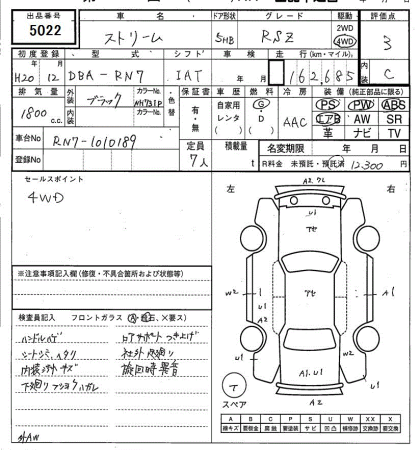 出品番号 車名 ドア形状 グレード 駆動 評価点
5022 ストリーム 5HB RSZ 2WD 4WD 3
初度登録 型式 シフト 車検 走行(km・マイル) 内装
H20年 12月 DBA-RN7 IAT 年 月 162,685 C
排気量 外装 ブラック カラーNo. NH731P 色替 保証書 車歴 燃料 冷房 装備(純正部品に限る)
1800 c.c. 内装 カラーNo. 有・無 自家用 レンタ ( ) G・D ( ) AAC PS PW ABS
エアB AW SR
革 ナビ TV
車台No. RN7-1010189 定員 7人 積載量 t 名変期限 年 月 日
登録No. R料金 未預託・預託済 12,300円
セールスポイント
4WD
左 右
※注意事項記入欄(修復・不具合箇所および状態等)
検査員記入 フロントガラス(A・飛石、×要ス)
ハンドルハゲ ロアサポートつき上げ
シートシミ、ヘタリ 社外足廻り
内装コケキズ 旋回時異音
下廻りフショクハガレ
社外AW
A2.U2
U1
アセ
U1
W2 1 アセ 1 A1
U1
A2
W2
U1 A1.U1 U1
A2
テ
スペア
A B C P S U W X XX
線キズ 要板金 腐蝕 要塗装 サビ 凹凸 補修跡 交換跡 交換済